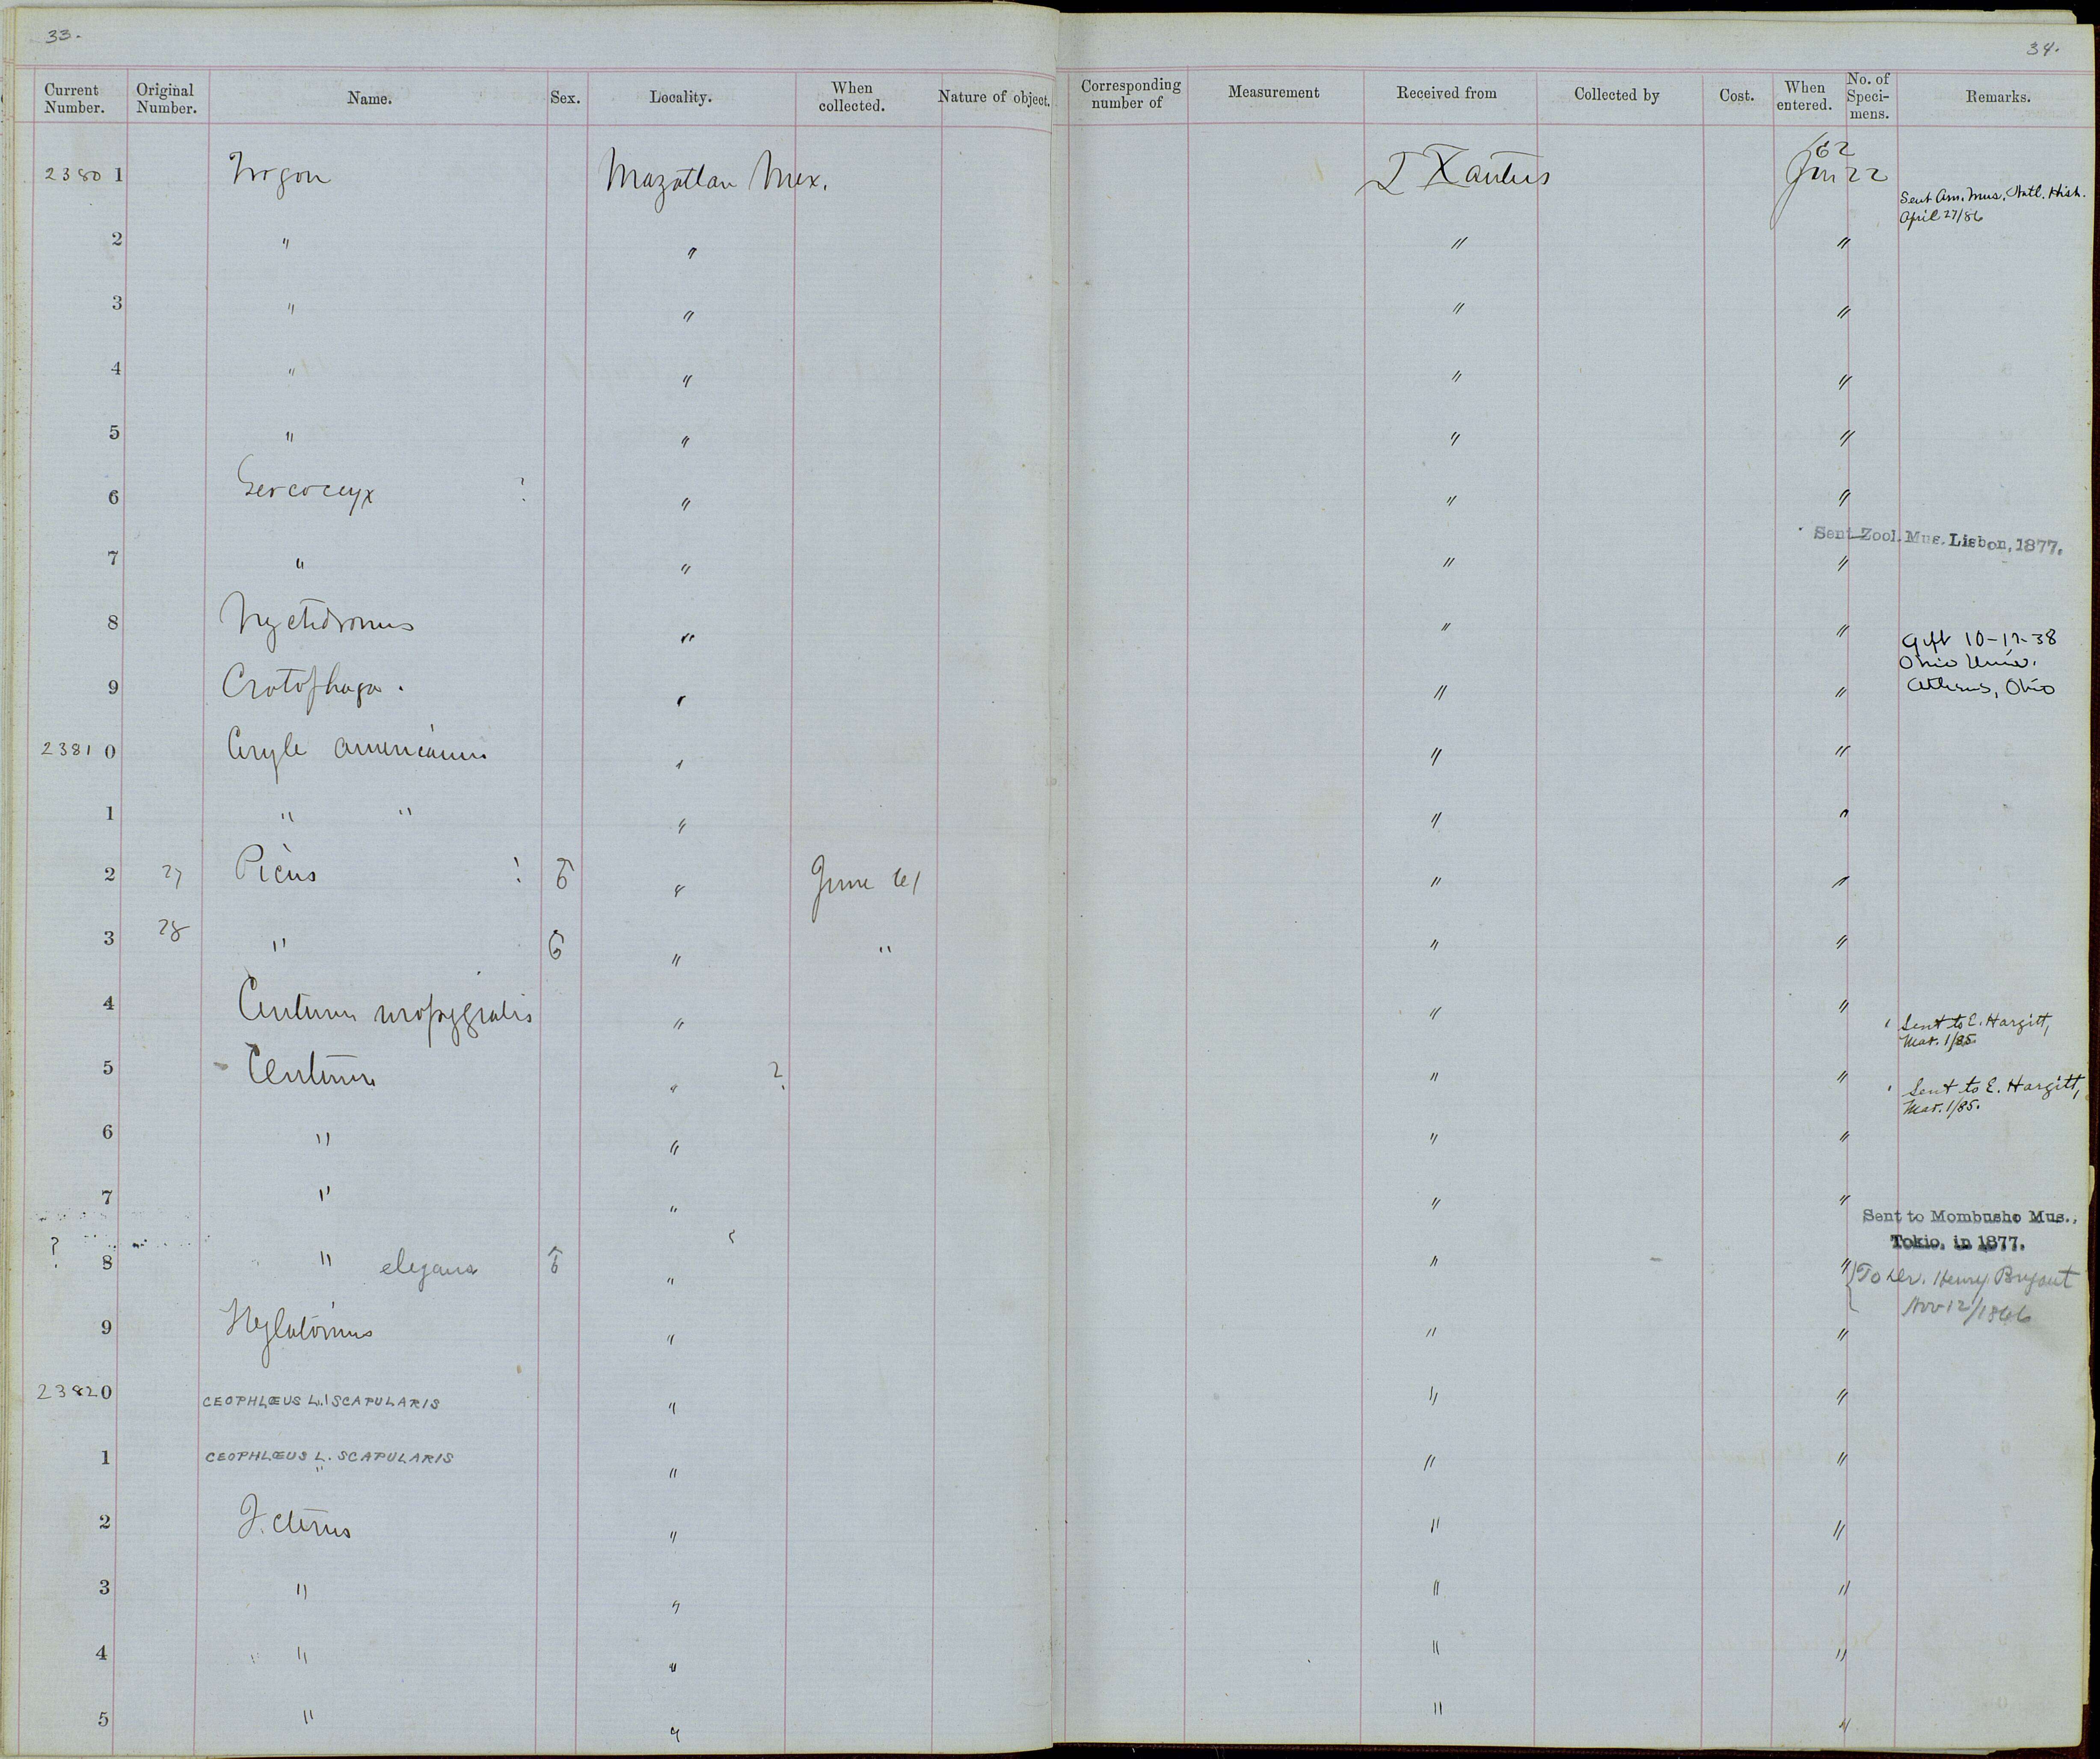 33.
34.
Current Number. Original Number. Name. Sex. Locality. When collected. Nature of object. Corresponding number of Measurement Received from Collected by Cost. When entered. No. of Specimens. Remarks.
23801 Trogon Mazatlan Mex. J Xantus 62 Jan 22 Sent Am. Mus. Natl. Hist. April 27/86
2 " " " "
3 " " " "
4 " " " "
5 " " " "
6 Geococcyx ? " " "
7 " " " " Sent Zool. Mus. Lisbon, 1877.
8 Nyctidromus " " " Gift 10-17-38
9 Crotophaga. " " " Ohio Univ. Athens, Ohio
23810 Ceryle americana " " "
1 " " " " "
2 27 Picus ! ♂ " June 61 " "
3 28 " ♂ " " " "
4 Centurus uropygialis " " " Sent to E. Hargitt, Mar. 1/85.
5 Centurus " ? " " Sent to E. Hargitt, Mar. 1/85.
6 " " " "
7 " " " " Sent to Mombusho Mus., Tokio, in 1877.
? 8 " elegans ♂ " " " To Dr. Henry Bryant Nov 12/1866
9 Hylatomus " " "
23820 CEOPHLŒUS L. SCAPULARIS " " "
1 CEOPHLŒUS L. SCAPULARIS " " " "
2 Icterus " " "
3 " " " "
4 " " " "
5 " " " "